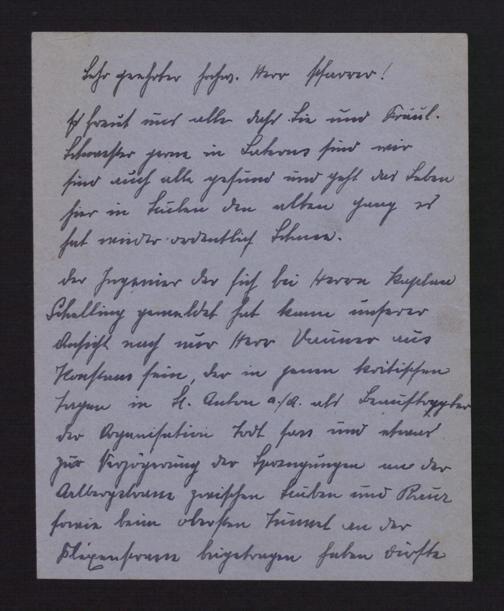 Sehr geehrter hochw. Herr Pfarrer!
Es freut uns alle daß Sie und Fräul.
Schwester gerne in Laterns sind wir
sind auch alle gesund und geht das Leben
hier in Stuben den alten Gang es
hat wieder ordentlich Schnee.
Der Ingenier der sich bei Herrn Kaplan
Schelling gemeldet hat kann unserer
Ansicht nach nur Herr aus
Konstanz sein, der in jenen kritischen
Tagen in St. Anton a./A. als Beauftragter
der Organisation Todt war und etwas
zur Verzögerung der Sprengungen an der
Arlbergstrasse zwischen Stuben und Rauz
sowie beim obersten Tunnel an der
Flexenstrasse beigetragen haben dürfte